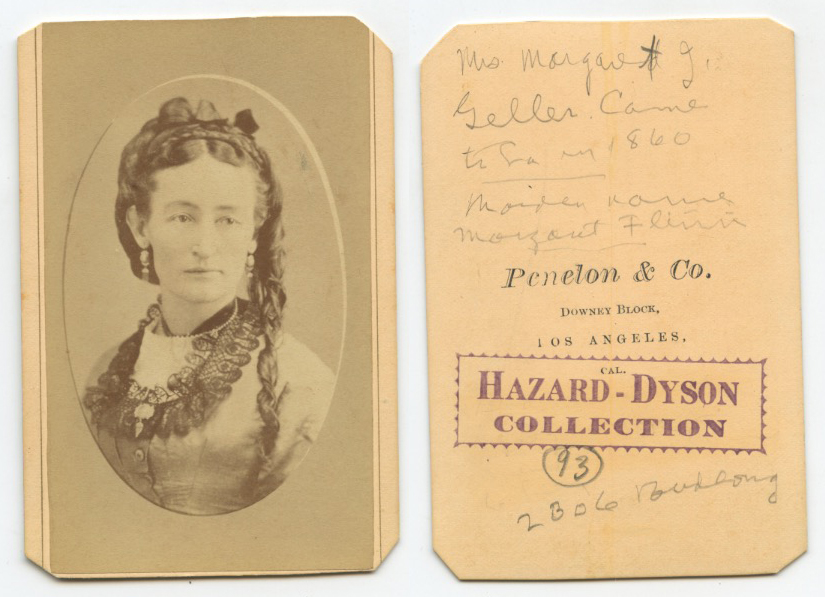 Mrs. Margaret J.
Geller. Came
to La in 1860
Maiden name
Margaret Flinn
Penelon & Co.
Downey Block,
LOS ANGELES,
CAL.
HAZARD-DYSON
COLLECTION
93
2306 Budlong